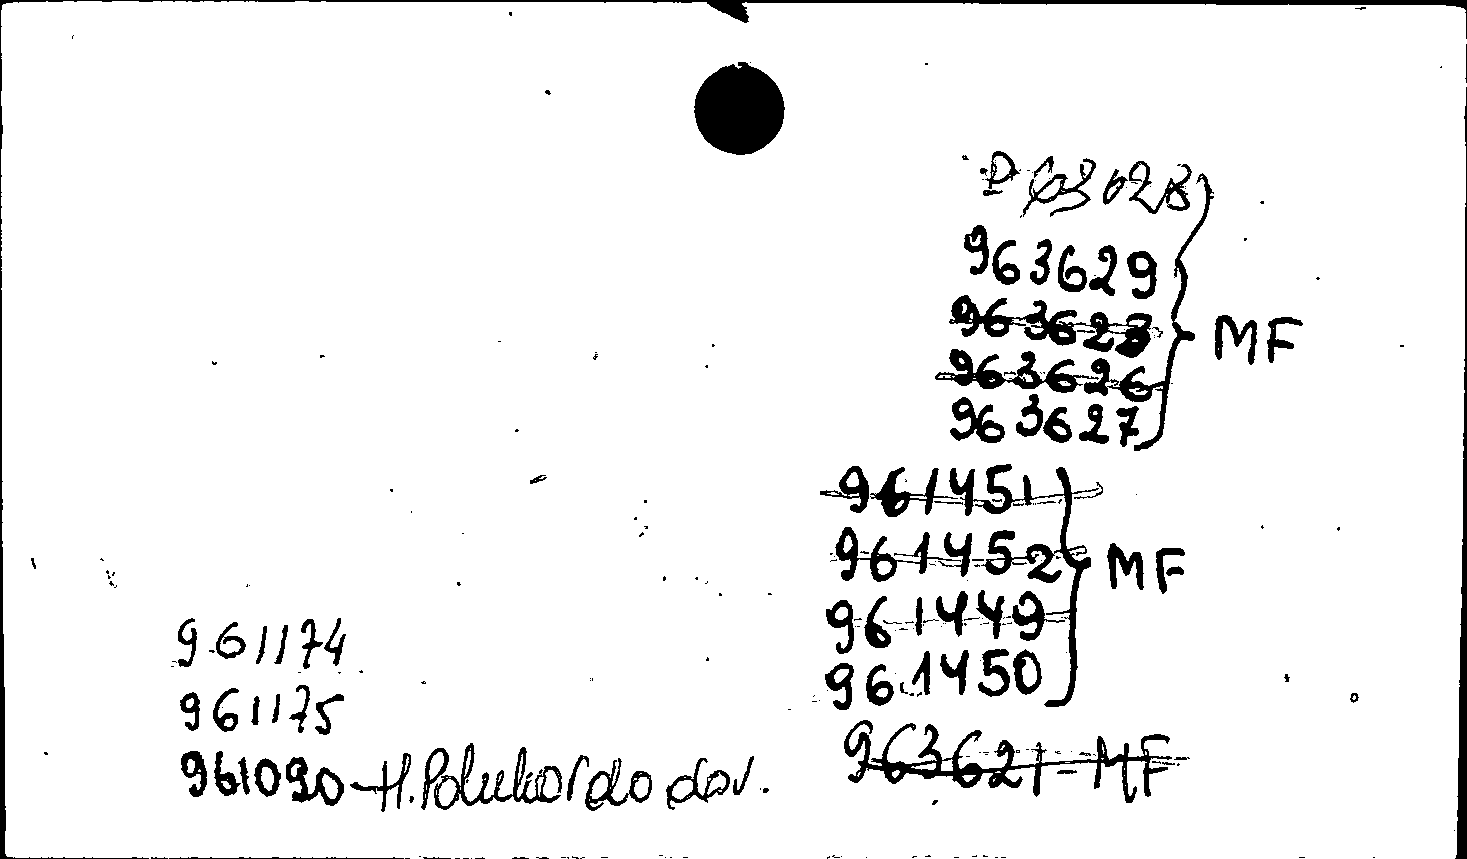 963628
963629
963623
963626
963627
MF
961451
961452
961449
961450
MF
963621-MF
961174
961175
961090-H. dov.